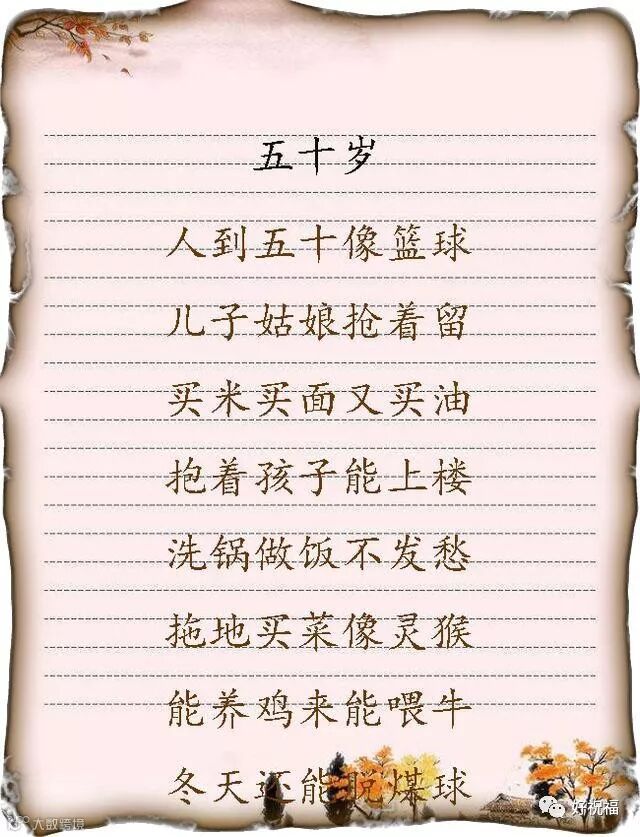 五十岁
人到五十像篮球
儿子姑娘抢着留
买米买面又买油
抱着孩子能上楼
洗锅做饭不发愁
拖地买菜像灵猴
能养鸡来能喂牛
冬天还能脱煤球
好祝福
大数跨境